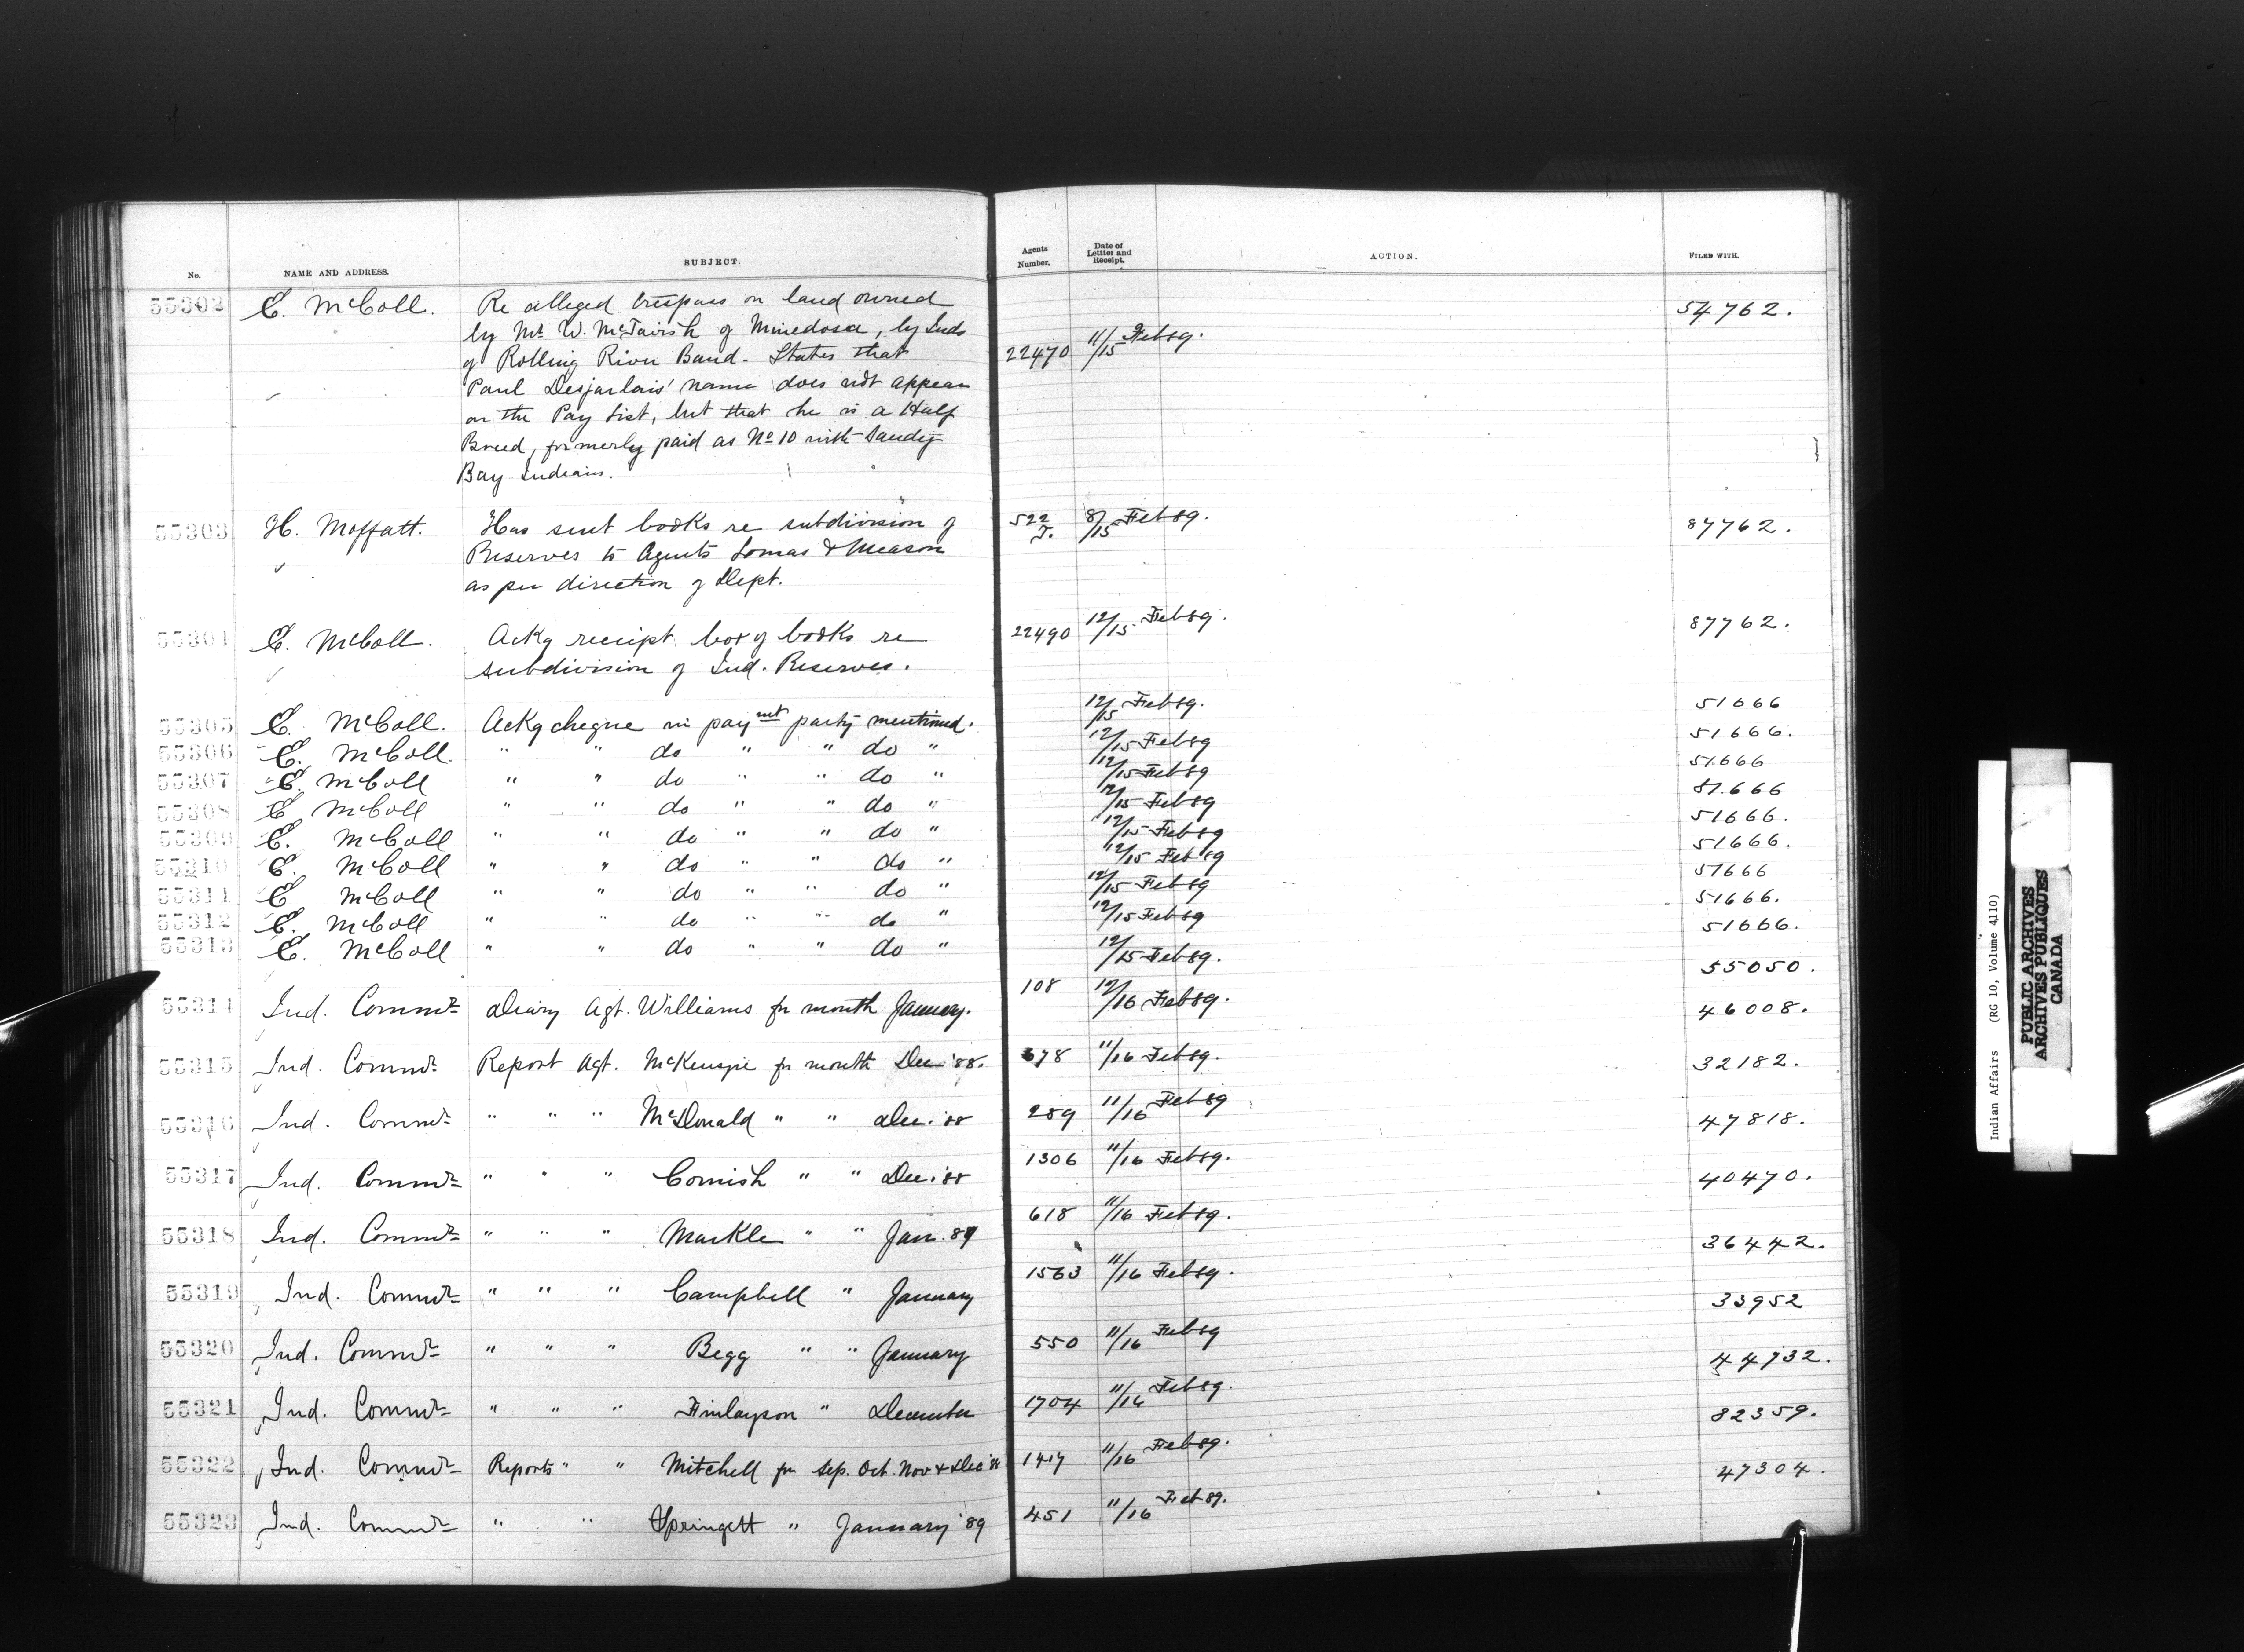 No. NAME AND ADDRESS. SUBJECT. Agents Number. Date of Letter and Receipt. ACTION. FILED WITH.
55302 E. McColl. Re alleged trespass on land owned 54762.
by Mr. W. McTavish of Minnedosa, by Inds
of Rolling River Band - States that 22470 11/15 Feb 89.
Paul Desjarlais' name does not appear
on the Pay List, but that he is a Half
Breed, formerly paid as No 10 with Sandy
Bay Indians.
55303 H. Moffatt. Has sent books re subdivision of 522 J. 8/15 Feb 89. 87762.
Reserves to Agents Lomas & Meason
as per direction of Dept.
55304 E. McColl. Ackg receipt box of books re 22490 12/15 Feb 89. 87762.
subdivision of Ind. Reserves.
55305 E. McColl. Ackg cheque in paymt party mentioned. 12/15 Feb 89. 51666
55306 E. McColl. " " do " " do " 12/15 Feb 89 51666.
55307 E. McColl " " do " " do " 12/15 Feb 89 51666
55308 E McColl " " do " " do " 12/15 Feb 89 51.666
55309 E. McColl " " do " " do " 12/15 Feb 89 51666.
55310 E. McColl " " do " " do " 12/15 Feb 89 51666.
55311 E McColl " " do " " do " 12/15 Feb 89 51666
55312 E. McColl " " do " " do " 12/15 Feb 89 51666.
55313 E. McColl " " do " " do " 12/15 Feb 89. 51666.
55314 Ind. Commr Diary Agt. Williams for month January. 108 12/16 Feb 89. 55050.
55315 Ind. Commr Report Agt. McKenzie for month Dec '88. 678 11/16 Feb 89. 46008.
55316 Ind. Commr " " " McDonald " " Dec. '88 289 11/16 Feb 89 32182.
55317 Ind. Commr " " " Cornish " " Dec. '88 1306 11/16 Feb 89. 47818.
55318 Ind. Commr " " " Markle " " Jan. 89 618 11/16 Feb 89. 40470.
55319 Ind. Commr " " " Campbell " January 1563 11/16 Feb 89. 36442.
55320 Ind. Commr " " " Begg " " January 550 11/16 Feb 89 33952
55321 Ind. Commr " " " Finlayson " December 1704 11/16 Feb 89. 44732.
55322 Ind. Commr Reports " " Mitchell for Sep. Oct. Nov & Dec '88 1417 11/16 Feb 89. 82359.
55323 Ind. Commr " " Springett " January '89 451 11/16 Feb 89. 47304.
Indian Affairs (RG 10, Volume 4110)
PUBLIC ARCHIVES
ARCHIVES PUBLIQUES
CANADA